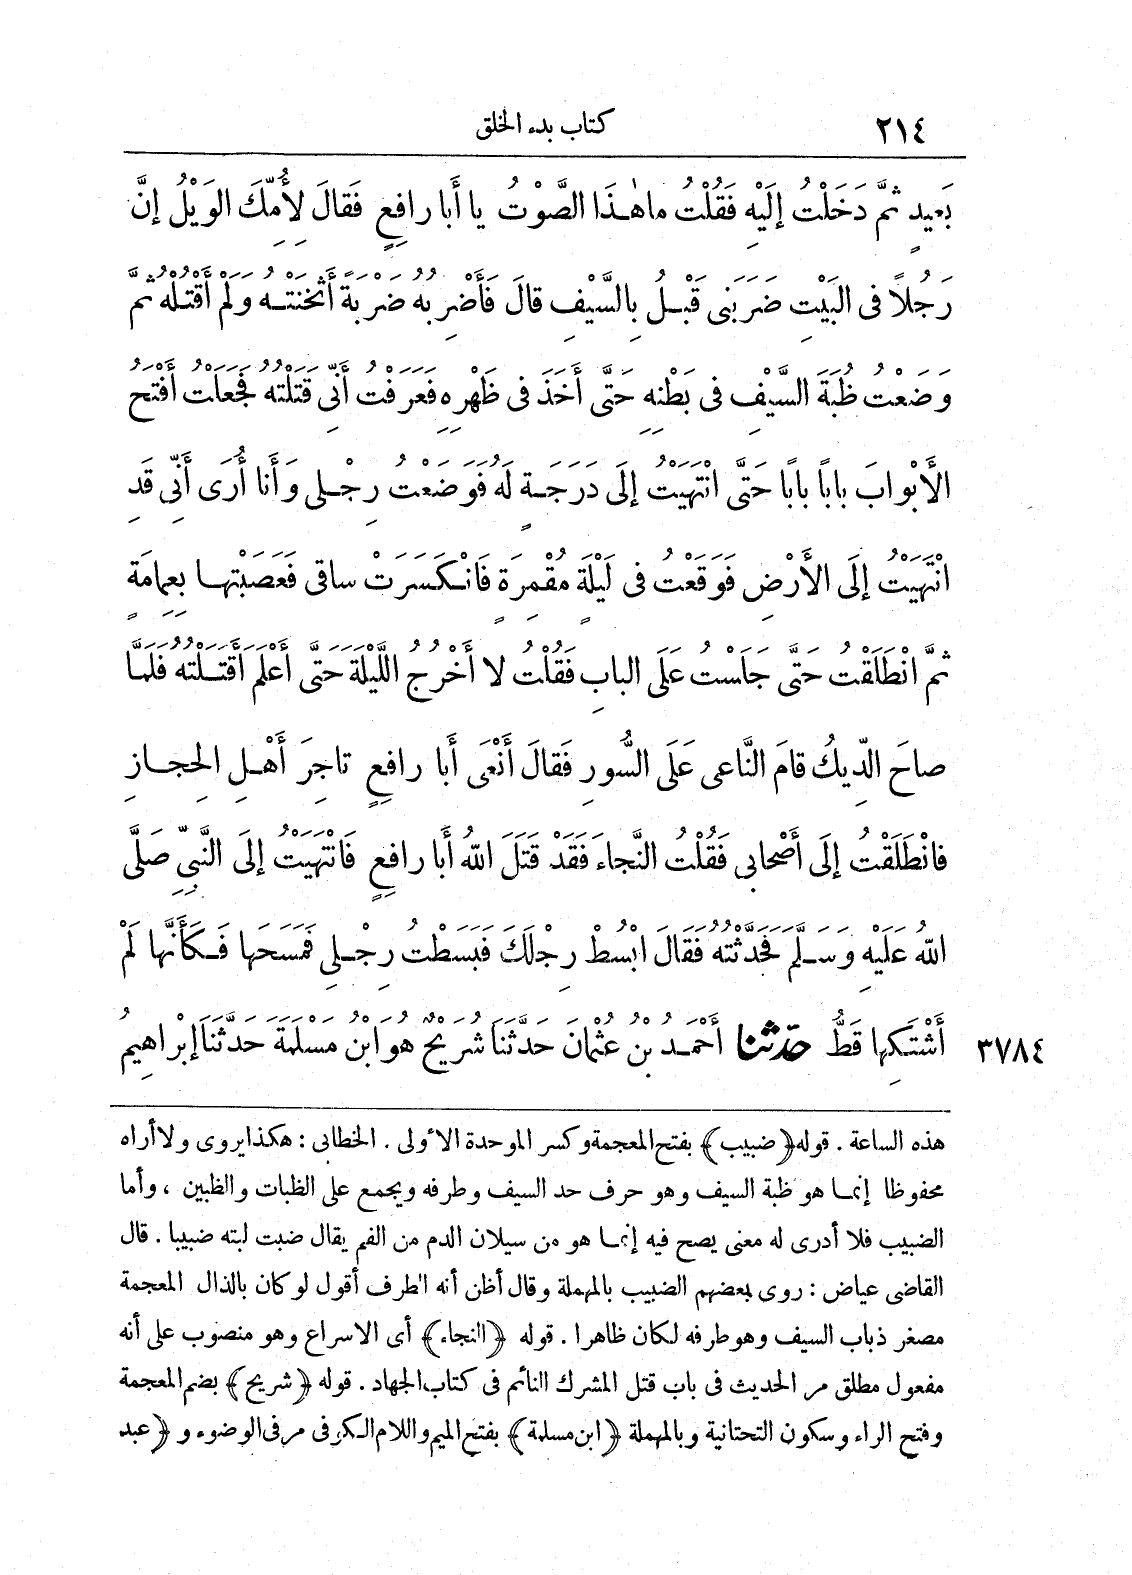 ٢١٤ كتاب بدء الخلق
بَعِيدٍ ثُمَّ دَخَلْتُ إِلَيْهِ فَقُلْتُ ما هٰذَا الصَّوْتُ يا أَبا رافِعٍ فَقالَ لِأُمِّكَ الوَيْلُ إِنَّ
رَجُلاً فى البَيْتِ ضَرَبَنِى قَبْلُ بِالسَّيْفِ قالَ فَأَضْرِبُهُ ضَرْبَةً أَثْخَنَتْهُ وَلَمْ أَقْتُلْهُ ثُمَّ
وَضَعْتُ ظُبَةَ السَّيْفِ فى بَطْنِهِ حَتَّى أَخَذَ فى ظَهْرِهِ فَعَرَفْتُ أَنِّى قَتَلْتُهُ فَجَعَلْتُ أَفْتَحُ
الأَبْوابَ باباً باباً حَتَّى انْتَهَيْتُ إِلَى دَرَجَةٍ لَهُ فَوَضَعْتُ رِجْلِى وَأَنا أُرَى أَنِّى قَدِ
انْتَهَيْتُ إِلَى الأَرْضِ فَوَقَعْتُ فى لَيْلَةٍ مُقْمِرَةٍ فَانْكَسَرَتْ ساقى فَعَصَبْتُها بِعِمامَةٍ
ثُمَّ انْطَلَقْتُ حَتَّى جَلَسْتُ عَلَى البابِ فَقُلْتُ لا أَخْرُجُ اللَّيْلَةَ حَتَّى أَعْلَمَ أَقَتَلْتُهُ فَلَمَّا
صاحَ الدِّيكُ قامَ النَّاعى عَلَى السُّورِ فَقالَ أَنْعَى أَبا رافِعٍ تاجِرَ أَهْلِ الحِجازِ
فانْطَلَقْتُ إِلَى أَصْحابِى فَقُلْتُ النَّجاءَ فَقَدْ قَتَلَ اللهُ أَبا رافِعٍ فَانْتَهَيْتُ إِلَى النَّبِىِّ صَلَّى
اللهُ عَلَيْهِ وَسَلَّمَ فَحَدَّثْتُهُ فَقَالَ ابْسُطْ رِجْلَكَ فَبَسَطْتُ رِجْلِى فَمَسَحَها فَكَأَنَّها لَمْ
أَشْتَكِها قَطُّ حَدَّثَنا أَحْمَدُ بْنُ عُثْمَانَ حَدَّثَنَا شُرَيْحٌ هُوَ ابْنُ مَسْلَمَةَ حَدَّثَنَا إِبْراهِيمُ ٣٧٨٤
هذه الساعة . قوله ﴿ضبيب﴾ بفتح المعجمة وكسر الموحدة الأولى . الخطابى : هكذا يروى ولا أراه
محفوظا إنما هو ظبة السيف وهو حرف حد السيف وطرفه ويجمع على الظبات والظبين ، وأما
الضبيب فلا أدرى له معنى يصح فيه إنما هو من سيلان الدم من الفم يقال ضبت لبته ضبيبا . قال
القاضى عياض : روى بعضهم الضبيب بالمهملة وقال أظن أنه الطرف أقول لو كان بالذال المعجمة
مصغر ذباب السيف وهو طرفه لكان ظاهرا . قوله ﴿النجاء﴾ أى الاسراع وهو منصوب على أنه
مفعول مطلق مر الحديث فى باب قتل المشرك النائم فى كتاب الجهاد . قوله ﴿شريح﴾ بضم المعجمة
وفتح الراء وسكون التحتانية وبالمهملة ﴿ابن مسلمة﴾ بفتح الميم واللام الكوفى مر فى الوضوء و ﴿عبد